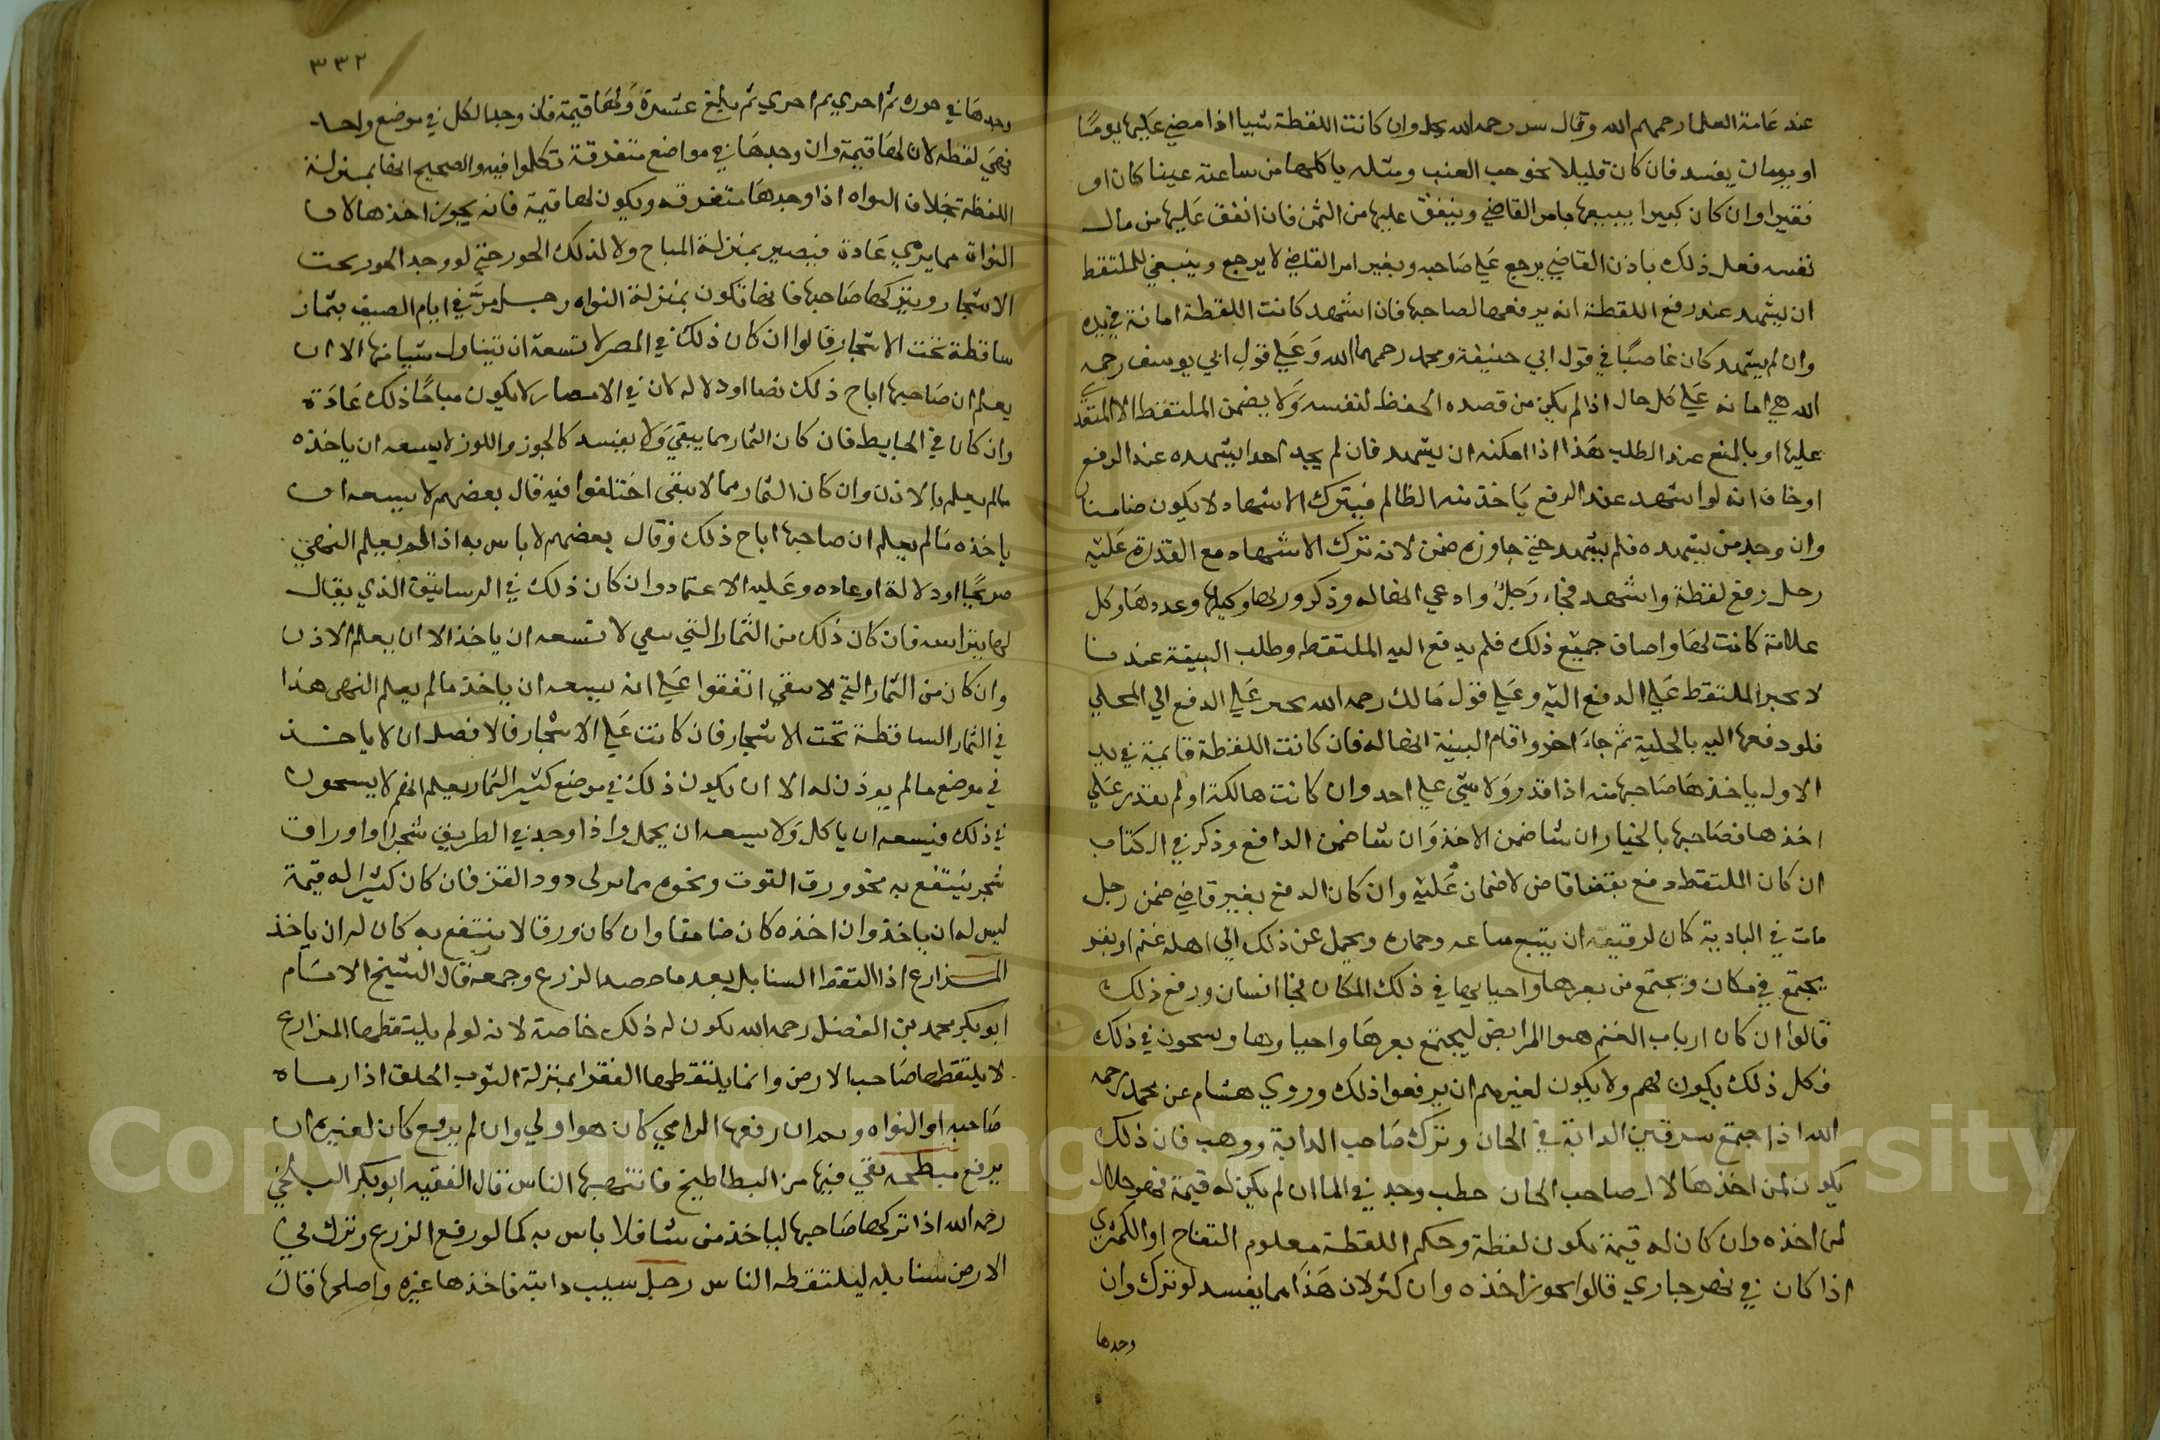 عند عامة العلما رحمهم الله وقال رحمه الله وان كانت اللقطة شيا اذا مضي عليها يومًا
او يومان يفسد فان كان قليلا نحو حب العنب ومثله ياكلها من ساعته عينا كان او
فقيرا وان كان كثيرا يبيعها بامر القاضي وينفق عليها من الثمن فان انفق عليها من مال
نفسه فعل ذلك باذن القاضي يرجع علي صاحبه وبغير امر القاضي لا يرجع وينبغي للملتقط
ان يشهد عند رفع اللقطة انه يرفعها لصاحبها فان اشهد كانت اللقطة امانة في يده
وان لم يشهد كان غاصبًا في قول ابي حنيفة ومحمد رحمهما الله وعلي قول ابي يوسف رحمه
الله هي امانه علي كل حال اذا لم يكن من قصده الحفظ لنفسه ولا يضمن الملتقط الا
عليها او بالمنع عند الطلب هذا اذا امكنه ان يشهد فان لم يجد احدا يشهده عند الرفع
او خاف انه لو اشهد عند الرفع ياخذ منه الظالم فيترك الاشهاد لا يكون ضامنا
وان وجد من يشهده فلم يشهد حتي جاوزه ضمن لانه ترك الاشهاد مع القدرة عليه
رجل رفع لقطة واشهد فجا رجل وادعي انها له وذكر وزنها وكيلها وعددها وكل
علامة كانت لها واصاف جميع ذلك فلم يدفع اليه الملتقط وطلب البينة عندنا
لا يجبر الملتقط علي الدفع اليه وعلي قول مالك رحمه الله يجبر علي الدفع الي المحلي
فلو دفعها اليه بالحلية ثم جاء اخر واقام البينة انها له فان كانت اللقطة قايمة في يد
الاول ياخذها صاحبها منه اذا قدر ولا شي علي احد وان كانت هالكة او لم يقدر علي
اخذها فصاحبها بالخيار ان شا ضمن الاخذ وان شا ضمن الدافع وذكر في الكتاب
ان كان الملتقط دفع بقضا قاض لا ضمان عليه وان كان الدفع بغير قاضي ضمن رجل
مات في البادية كان لرفيقه ان يبيع متاعه وحماره ويحمل ثمن ذلك الي اهله غنم او بقر
يجتمع في مكان ويجتمع من بعرها واحيابها في ذلك المكان فجا انسان ورفع ذلك
قالوا ان كان ارباب الغنم هيوا المرابض ليجتمع بعرها ويسمحون في ذلك
فكل ذلك يكون لهم ولا يكون لغيرهم ان يرفعوا ذلك وروي هشام عن محمد رحمه
الله اذا اجتمع سرقين الدابة في الخان وترك صاحب الدابة ووهب فان ذلك
يكون لمن اخذها لا لصاحب الخان حطب وجد في الما ان لم يكن له قيمة فهو حلال
لمن اخذه وان كان له قيمة يكون لقطة وحكم اللقطة معلوم التفاح او الكمثري
اذا كان في نهر جاري قالوا يجوز اخذه وان كثر لان هذا مما يفسد لو ترك وان
وجدها
٣٣٢
وجدها في جوزه ثم اخري ثم اخري ثم بلغ عشرة ولها قيمة فان وجد الكل في موضع واحد
فهي لقطه لان لها قيمة وان وجدها في مواضع متفرقة تكلموا فيه والصحيح انها بمنزلة
اللقطه بخلاف النواه اذا وجدها متفرقه ويكون لها قيمة فانه يجوز اخذها لان
النواة مما يرمي عادة فيصير بمنزلة المباح ولا لذلك الجوز حتي لو وجد الجوز تحت
الاشجار ويتركها صاحبها فانها تكون بمنزلة النواه رجل مر في ايام الصيف بثمار
ساقطة تحت الاشجار قالوا ان كان ذلك في المصر لا تسعه ان يتناول شيا منها الا ان
يعلم ان صاحبها اباح ذلك نصا او دلاله لان في الامصار لا يكون مباحًا ذلك عادة
وان كان في الحايط فان كان الثمار مما يبقي ولا يفسد كالجوز واللوز لا يسعه ان ياخذه
مالم يعلم بالاذن وان كان الثمار مما لا تبقي اختلفوا فيه قال بعضهم لا يسعه ان
ياخذه مالم يعلم ان صاحبها اباح ذلك وقال بعضهم لا باس به اذا لم يعلم النهي
صريحًا او دلالة او عاده وعليه الاعتماد وان كان ذلك في الرساتيق الذي يقال
لها فان كان ذلك من الثمار التي تبقي لا تسعه ان ياخذ الا ان يعلم الاذن
وان كان من الثمار التي لا تبقي اتفقوا علي انه يسعه ان ياخذ مالم يعلم النهي هذا
في الثمار الساقطة تحت الاشجار فان كانت علي الاشجار فالافضل ان لا ياخذ
في موضع مالم يوذن له الا ان يكون ذلك في موضع كثير الثمار يعلم انهم لا يشحون
في ذلك فيسعه ان ياكل ولا يسعه ان يحمل واذا وجد في الطريق شجرا او اوراق
شجر ينتفع به نحو ورق التوت ونحوه دود القز فان كان كثيرا له قيمة
ليس له ان ياخذ وان اخذه كان ضامنا وان كان ورقا لا ينتفع به كان له ان ياخذ
المزارع اذا التقط السنابل بعد ما حصد الزرع وجمعه قال الشيخ الامام
ابو بكر محمد بن الفضل رحمه الله يكون له ذلك خاصة لانه لو لم يلتقطها المزارع
لا يلتقطها صاحب الارض وانما يلتقطها الفقرا بمنزلة الثوب الخلق اذا رماه
صاحبه او النواه وبعد ان رفعها الرامي كان هو اولي وان لم يرفع كان لغيره ان
يرفع مبطخه بقي فيها من البطاطيخ فانتهبها الناس قال الفقيه ابو بكر البلخي
رحمه الله اذا تركها صاحبها لياخذ من شا فلا باس به كما لو رفع الزرع وترك في
الارض سنابله ليلتقطه الناس رجل سيب دابته فاخذها غيره واصلحها قال
Copyright © King Saud University